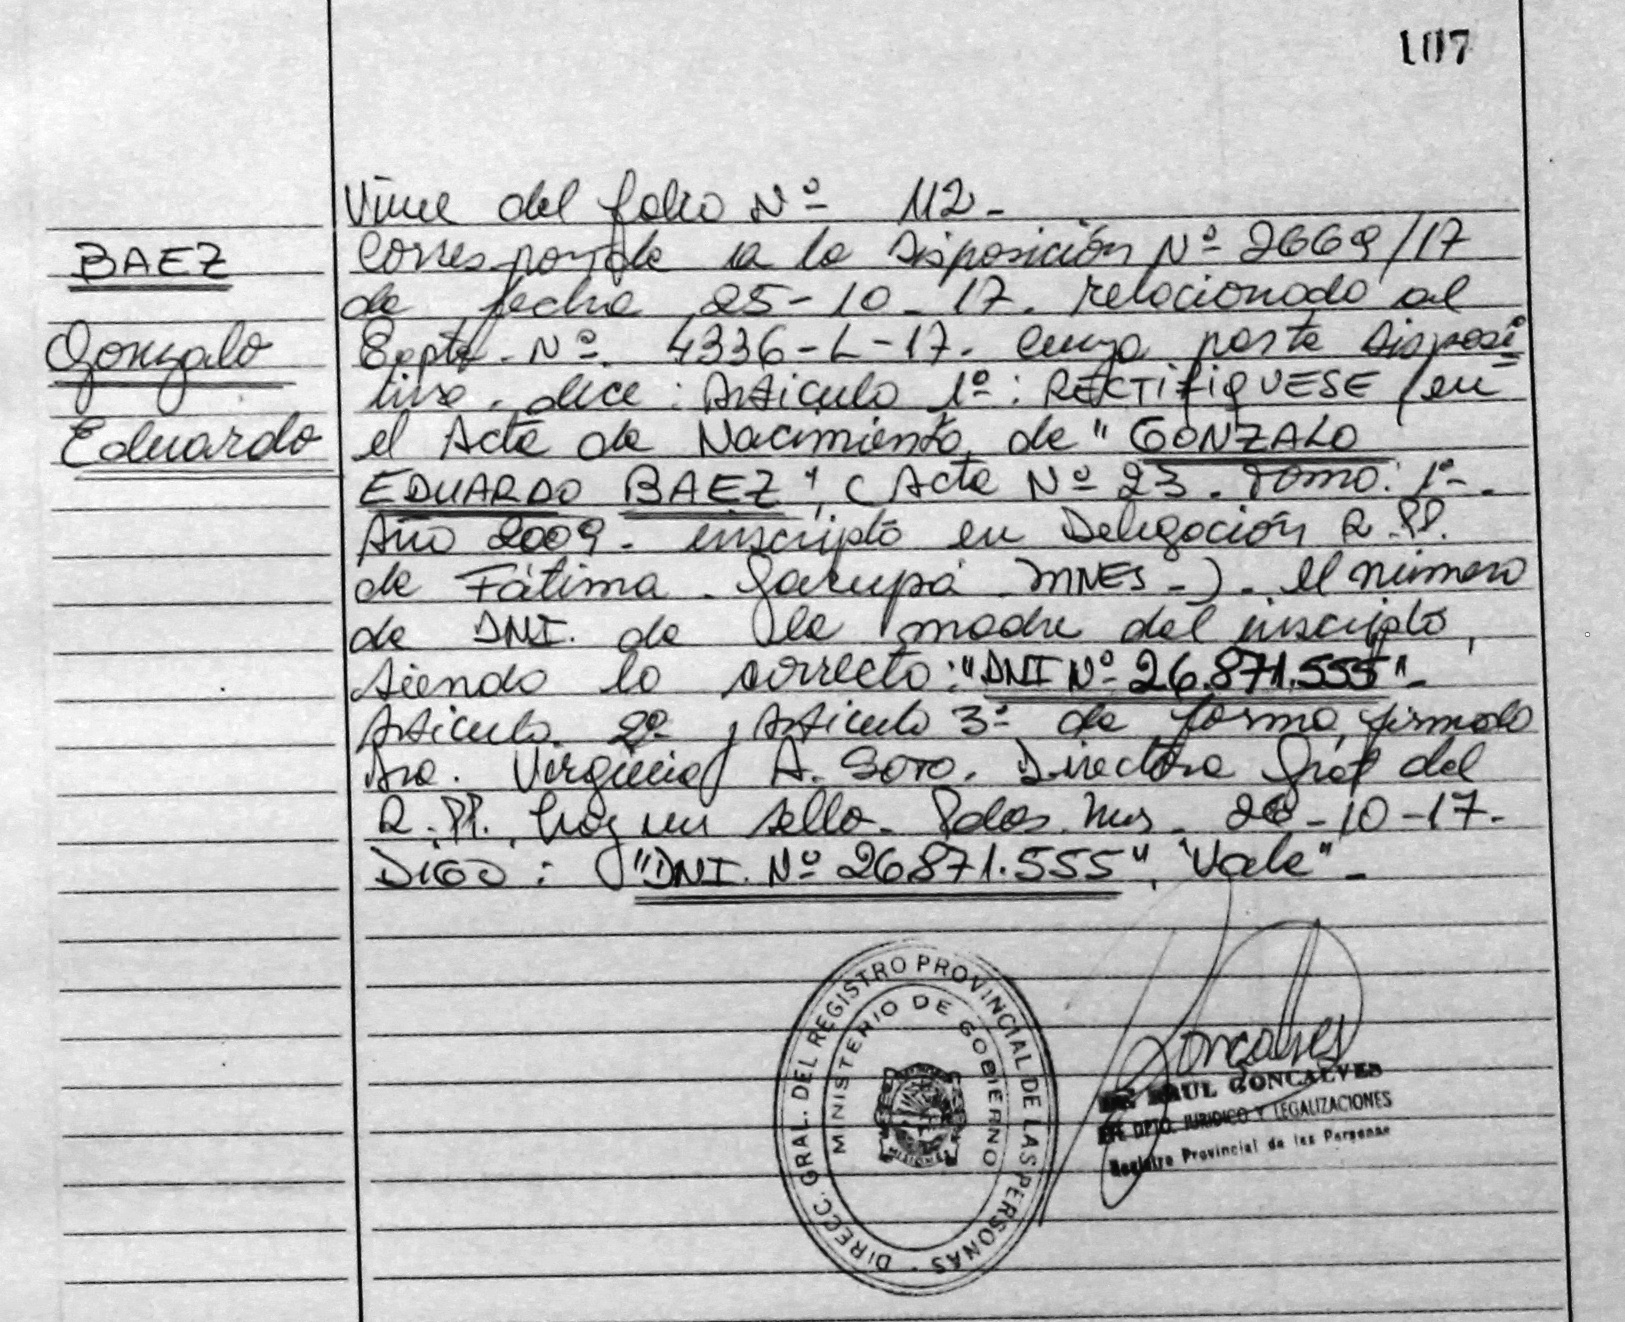 107
Viene del folio Nº 112-
BAEZ
Gonzalo
Eduardo
Corresponde a la Disposición Nº 2669/17
de fecha 25-10-17. relacionado al
Expte. Nº 4336-L-17. cuya parte Disposi
tiva. dice: Articulo 1º: RECTIFIQUESE en
el Acta de Nacimiento de "GONZALO
EDUARDO BAEZ", (Acta Nº 23. Tomo: 1º-.
Año 2009. inscripto en Delegación R.PP.
de Fátima. Garupá. MNES-). el número
de DNI. de la madre del inscripto,
siendo lo correcto: "DNI Nº 26.871.555".
Articulo 2º y Articulo 3º de forma, firmado
Dra. Virginia A. Soto. Directora Gral del
R.PP. hay un sello. Pdas. Mns. 26-10-17.
DIGO: "DNI. Nº 26871.555", "Vale".
DIRECC. GRAL. DEL REGISTRO PROVINCIAL DE LAS PERSONAS
MINISTERIO DE GOBIERNO
MISIONES
Goncalves
RAUL GONCALVES
DPTO. JURIDICO Y LEGALIZACIONES
Registro Provincial de las Personas